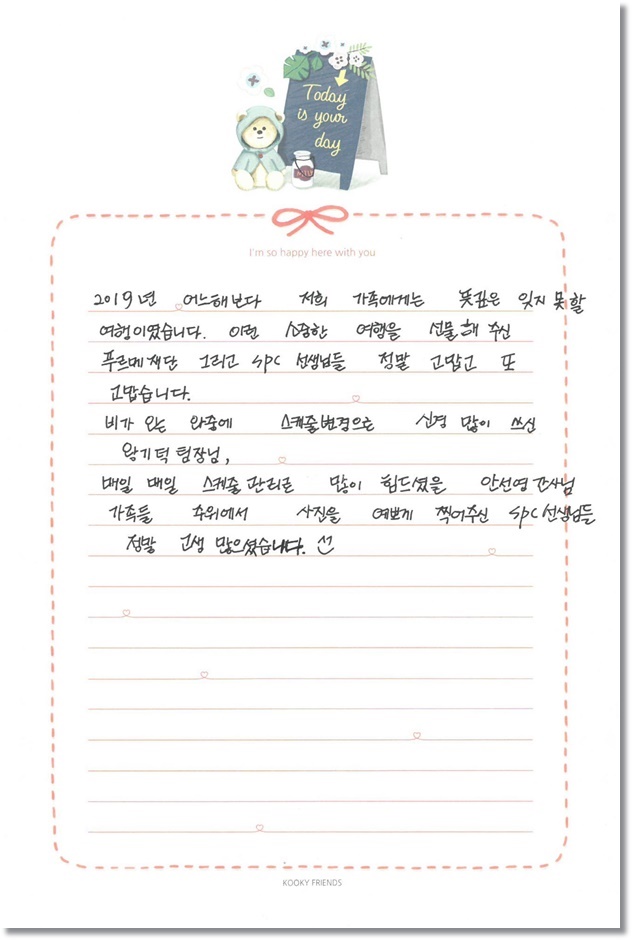 Today
is your
day
MILK
I'm so happy here with you
2019년 어느해보다 저희 가족에게는 뜻깊은 잊지 못할
여행이였습니다. 이런 소중한 여행을 선물해 주신
푸르메재단 그리고 SPC 선생님들 정말 고맙고 또
고맙습니다.
비가 오는 와중에 스케줄변경으로 신경 많이 쓰신
왕기덕 팀장님,
매일 매일 스케줄 관리로 많이 힘드셨을 안선영 간사님
가족들 주위에서 사진을 예쁘게 찍어주신 SPC선생님들
정말 고생 많으셨습니다.
KOOKY FRIENDS